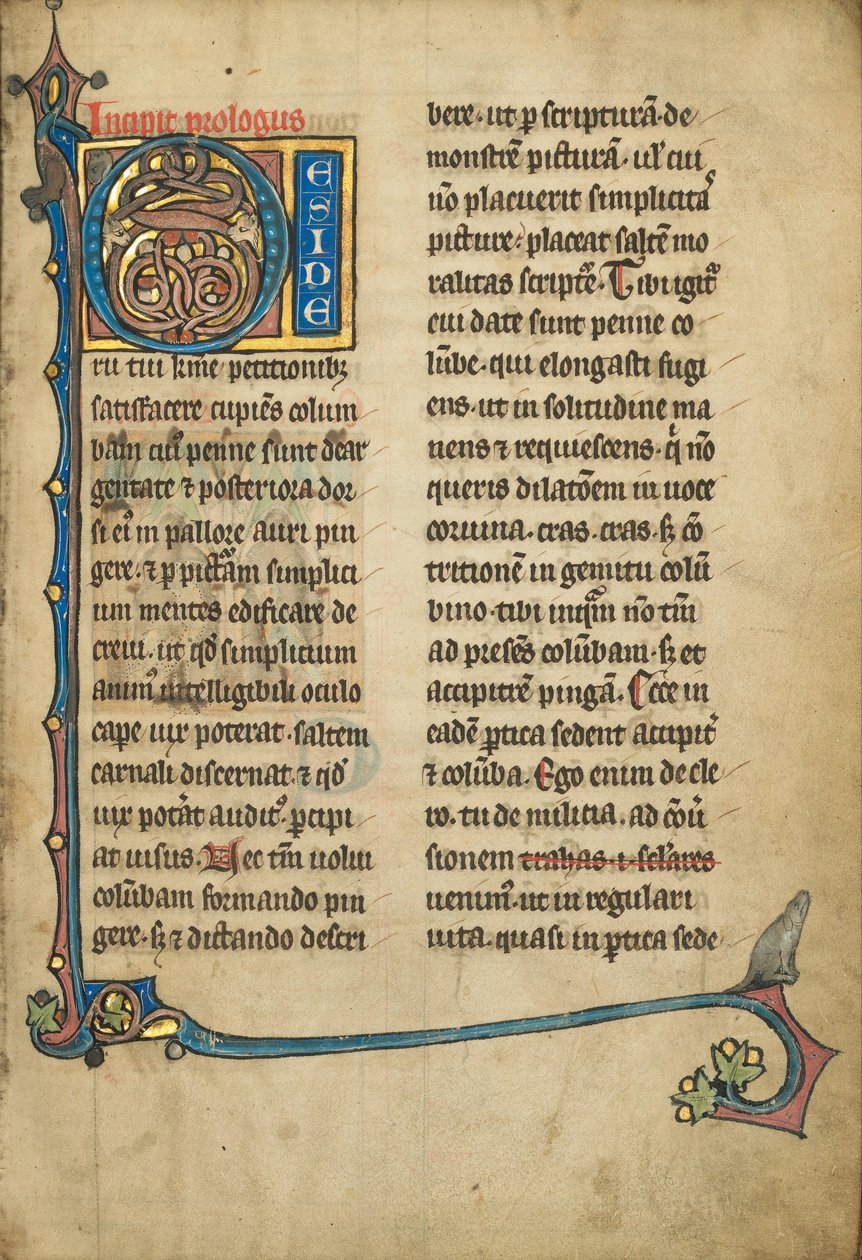 Incipit prologus
DESIDE
rii tui kr̄me petitionibꝫ
satisfacere cupiēs colum
bam cuiꝰ penne sunt dear
gentate ⁊ posteriora dor
si eiꝰ in pallore auri pin
gere. ⁊ ꝑ picturam simplici
um mentes edificare de
creui. ut qd̓ simplicium
animꝰ intelligibili oculo
cape uix poterat. saltem
carnali discernat. ⁊ qd̓
uix potat̓ auditꝰ. ꝑcipi
at uisus. Nec tm̄ uolui
colūbam formando pin
gere. sꝫ ⁊ dictando descri
bere. ut ꝑ scripturā de
monstrē picturā. ul̓ cui
nō placuerit simplicitaˢ
picture. placeat saltē mo
ralitas scripte᷑. Tibi igit᷑
cui date sunt penne co
lūbe. qui elongasti fugi
ens. ut in solitudine ma
neas ⁊ requiescens. qͥ nō
queris dilatōem in uoce
coruina. cras. cras. sꝫ cō
tritionē in gemitu colū
bino. tibi inqͣm nō tm̄
ad presēs colūbam. sꝫ et
accipitrē pingā. Ecce in
eadē ꝑtica sedent accipit̓
⁊ colūba. Ego enim de cle
ro. tu de milicia. ad cōu̓
sionem trahas ·i· scl̓ares
uenimꝰ. ut in regulari
uita. quasi in ꝑtica sede